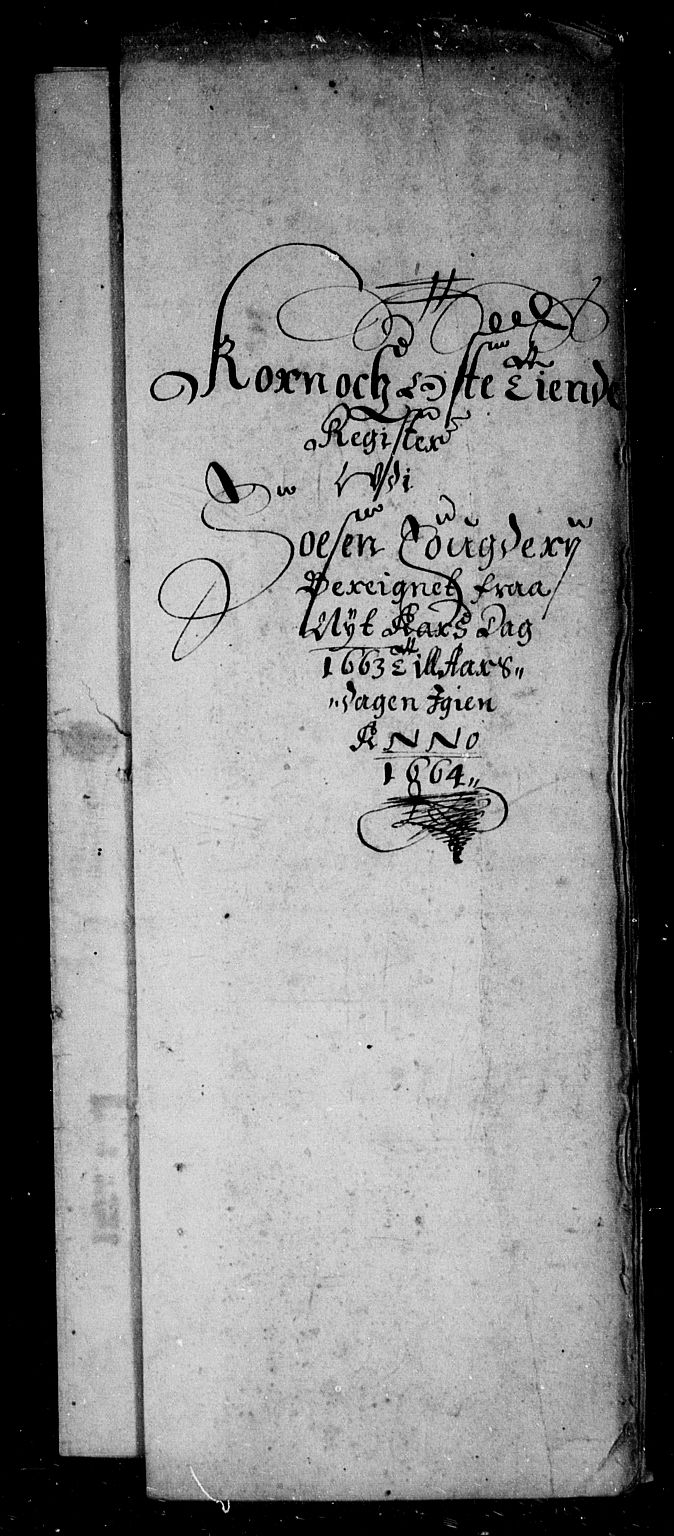 Korn och Oste Tiende
Register
Wdi
Soløer Fougderij
Bereignet fraa
Nÿt Aars Dag
1663 Till Aars„
„dagen Igien
ANNO
1664„